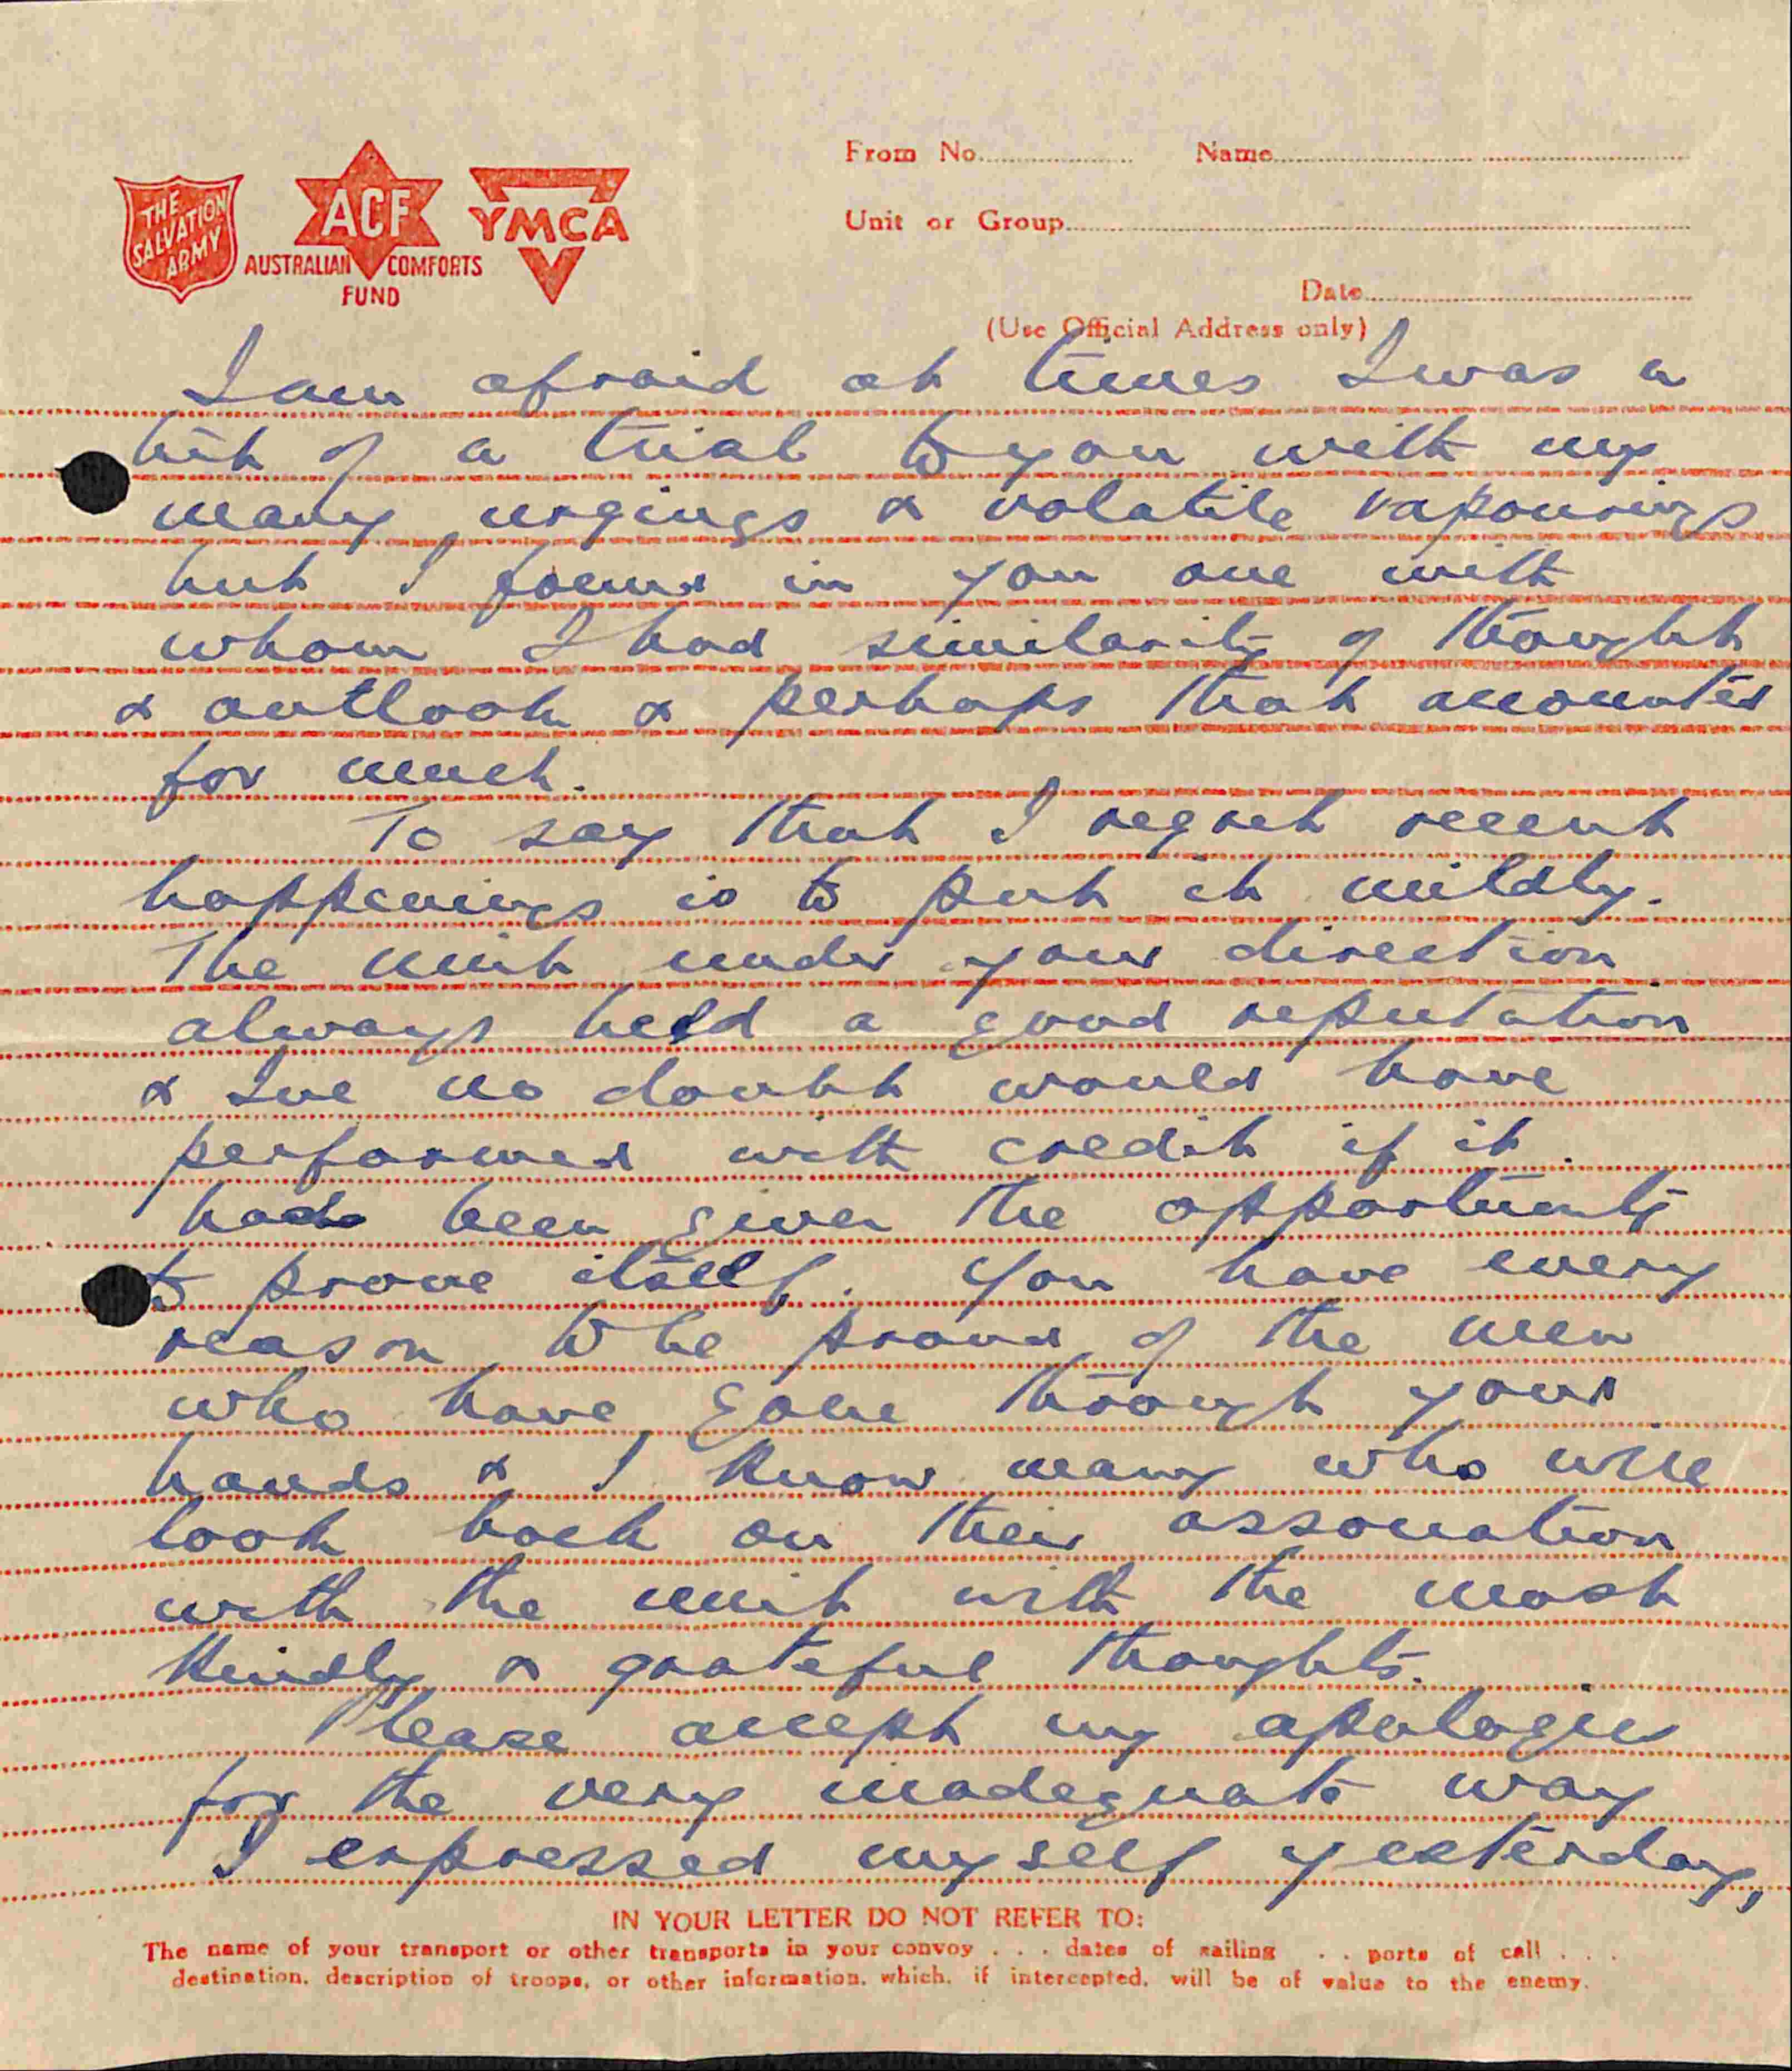 THE
SALVATION
ARMY
ACF
AUSTRALIAN COMFORTS
FUND
YMCA
From No. Name
Unit or Group
Date
(Use Official Address only)
I am afraid at times I was a
bit of a trial to you with my
many urgings & volatile vapourings
but I found in you one with
whom I had similarity of thought
& outlook & perhaps that accounted
for much.
To say that I regret recent
happenings is to put it mildly.
The unit under your direction
always held a good reputation
& I've no doubt would have
performed with credit if it
had been given the opportunity
to prove itself. You have every
reason to be proud of the men
who have gone through your
hands & I know many who will
look back on their association
with the unit with the most
kindly & grateful thoughts.
Please accept my apologies
for the very inadequate way
I expressed myself yesterday,
IN YOUR LETTER DO NOT REFER TO:
The name of your transport or other transports in your convoy . . . dates of sailing . . ports of call . . .
destination, description of troops, or other information, which, if intercepted, will be of value to the enemy.